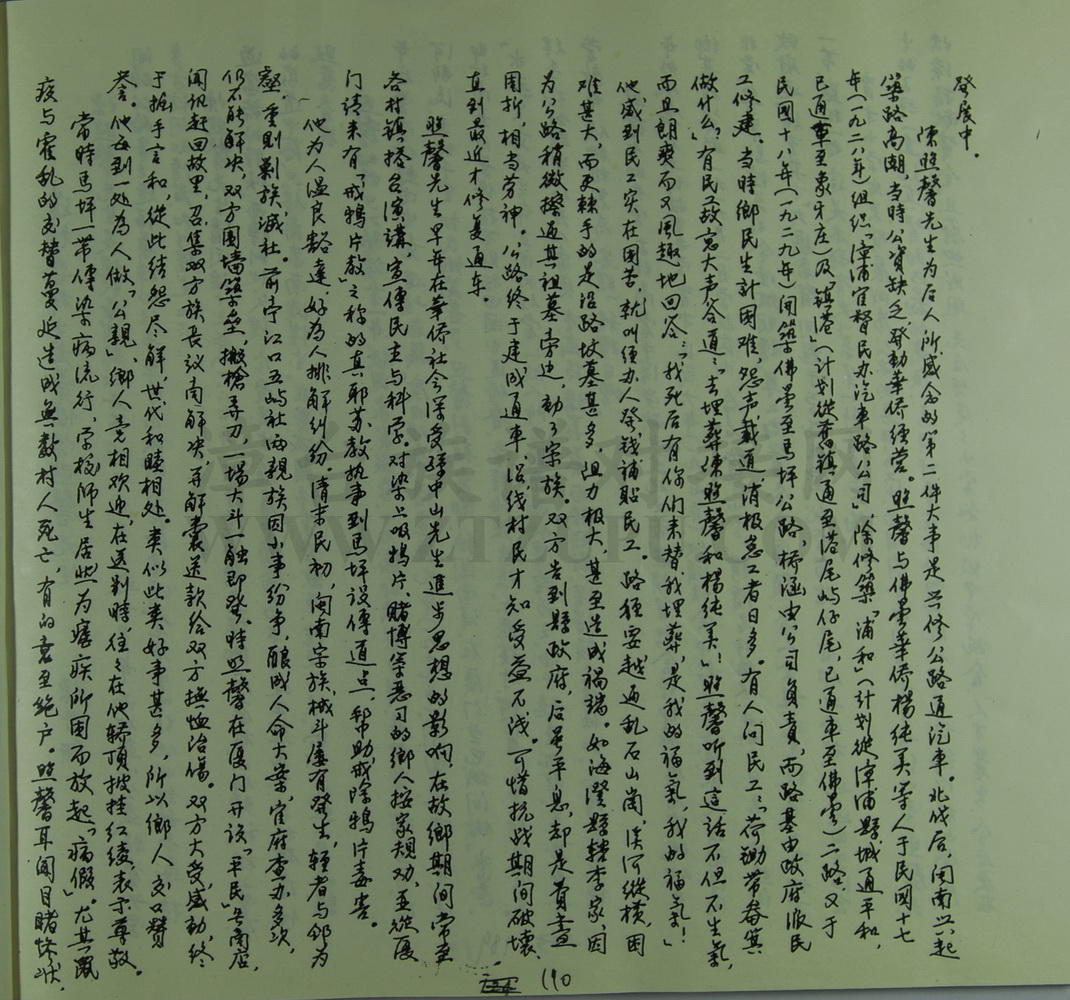 发展中。
陈照馨先生为后人所感念的第二件大事是兴修公路通汽车。北伐后,闽南兴起
筑路高潮,当时公资缺乏,发动华侨经营。照馨与佛昙华侨杨纯美等人于民国十七
年(一九二八年)组织“漳浦官督民办汽车路公司”,除修筑“浦和(计划从漳浦县城通平和,
已通車至象牙庄)及“镇港”(计划从旧镇通至港尾屿仔尾,已通車至佛昙)二路。又于
民國十八年(一九二九年)開筑佛昙至马坪公路,桥涵由公司负责,而路基由政府派民
工修建。当时鄉民生計困难,怨声載道,消极怠工者日多。有人问民工:“荷锄带畚箕
做什么?”有民工故意大声答道:“去埋葬陳照馨和楊纯美!”照馨听到這話不但不生氣,
而且朗爽而又風趣地回答:“我死后有你们来替我埋葬,是我的福氣,我的福氣!”
他感到民工实在困苦,就叫经办人發钱補貼民工。路经要越過乱石山崗,溪河縱横,困
难甚大,而更棘手的是沿路坟墓甚多,阻力极大,甚至造成祸端。如海澄縣轄李家,因
为公路稍微擦過其祖墓旁边,動了宗族。双方告到縣政府,后虽平息,却是費尽
周折,相当劳神。公路终于建成通車,沿线村民才知受益不浅。可惜抗战期间破壞,
直到最近才修复通车。
照馨先生早年在華侨社会深受孫中山先生進步思想的影响,在故鄉期间常至
各村镇,搭台演講,宣傳民主与科学。对染上吸鸦片、賭博等惡习的鄉人按家規劝,并從厦
门請来有“戒鸦片教”之称的真耶苏教执事到马坪設傳道点,帮助戒除鴉片毒害。
他为人溫良豁達,好为人排解糾纷。清末民初,闽南宗族械斗屢有發生,轻者与邻为
壑,重則剿族滅社。前亭江口五屿社兩親族因小事纷争,釀成人命大案,官府查办多次,
仍不能解决,双方围墙築垒,搬槍弄刀,一場大斗一触即發。時照馨在厦门开设“平民”号商店,
闻讯赶回故里,召集双方族長议商解决,并解囊送款给双方撫恤治傷。双方大受感動,终
于握手言和,從此结怨尽解,世代和睦相处。类似此类好事甚多,所以鄉人交口讚
誉。他每到一处为人做“公親”,鄉人竞相欢迎,在送别時,往々在他轿頂披挂红绫,表示尊敬。
當時马坪一带傳染病流行,学校師生居然为瘧疾所困而放起“病假”。尤其鼠
疫与霍乱的交替蔓延造成無數村人死亡,有的竟至絶户。照馨耳闻目睹惨状,
190